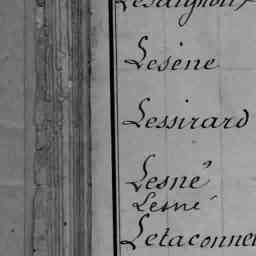 Lesène
Lessirard
Lesné
Lesné
Letaconnet